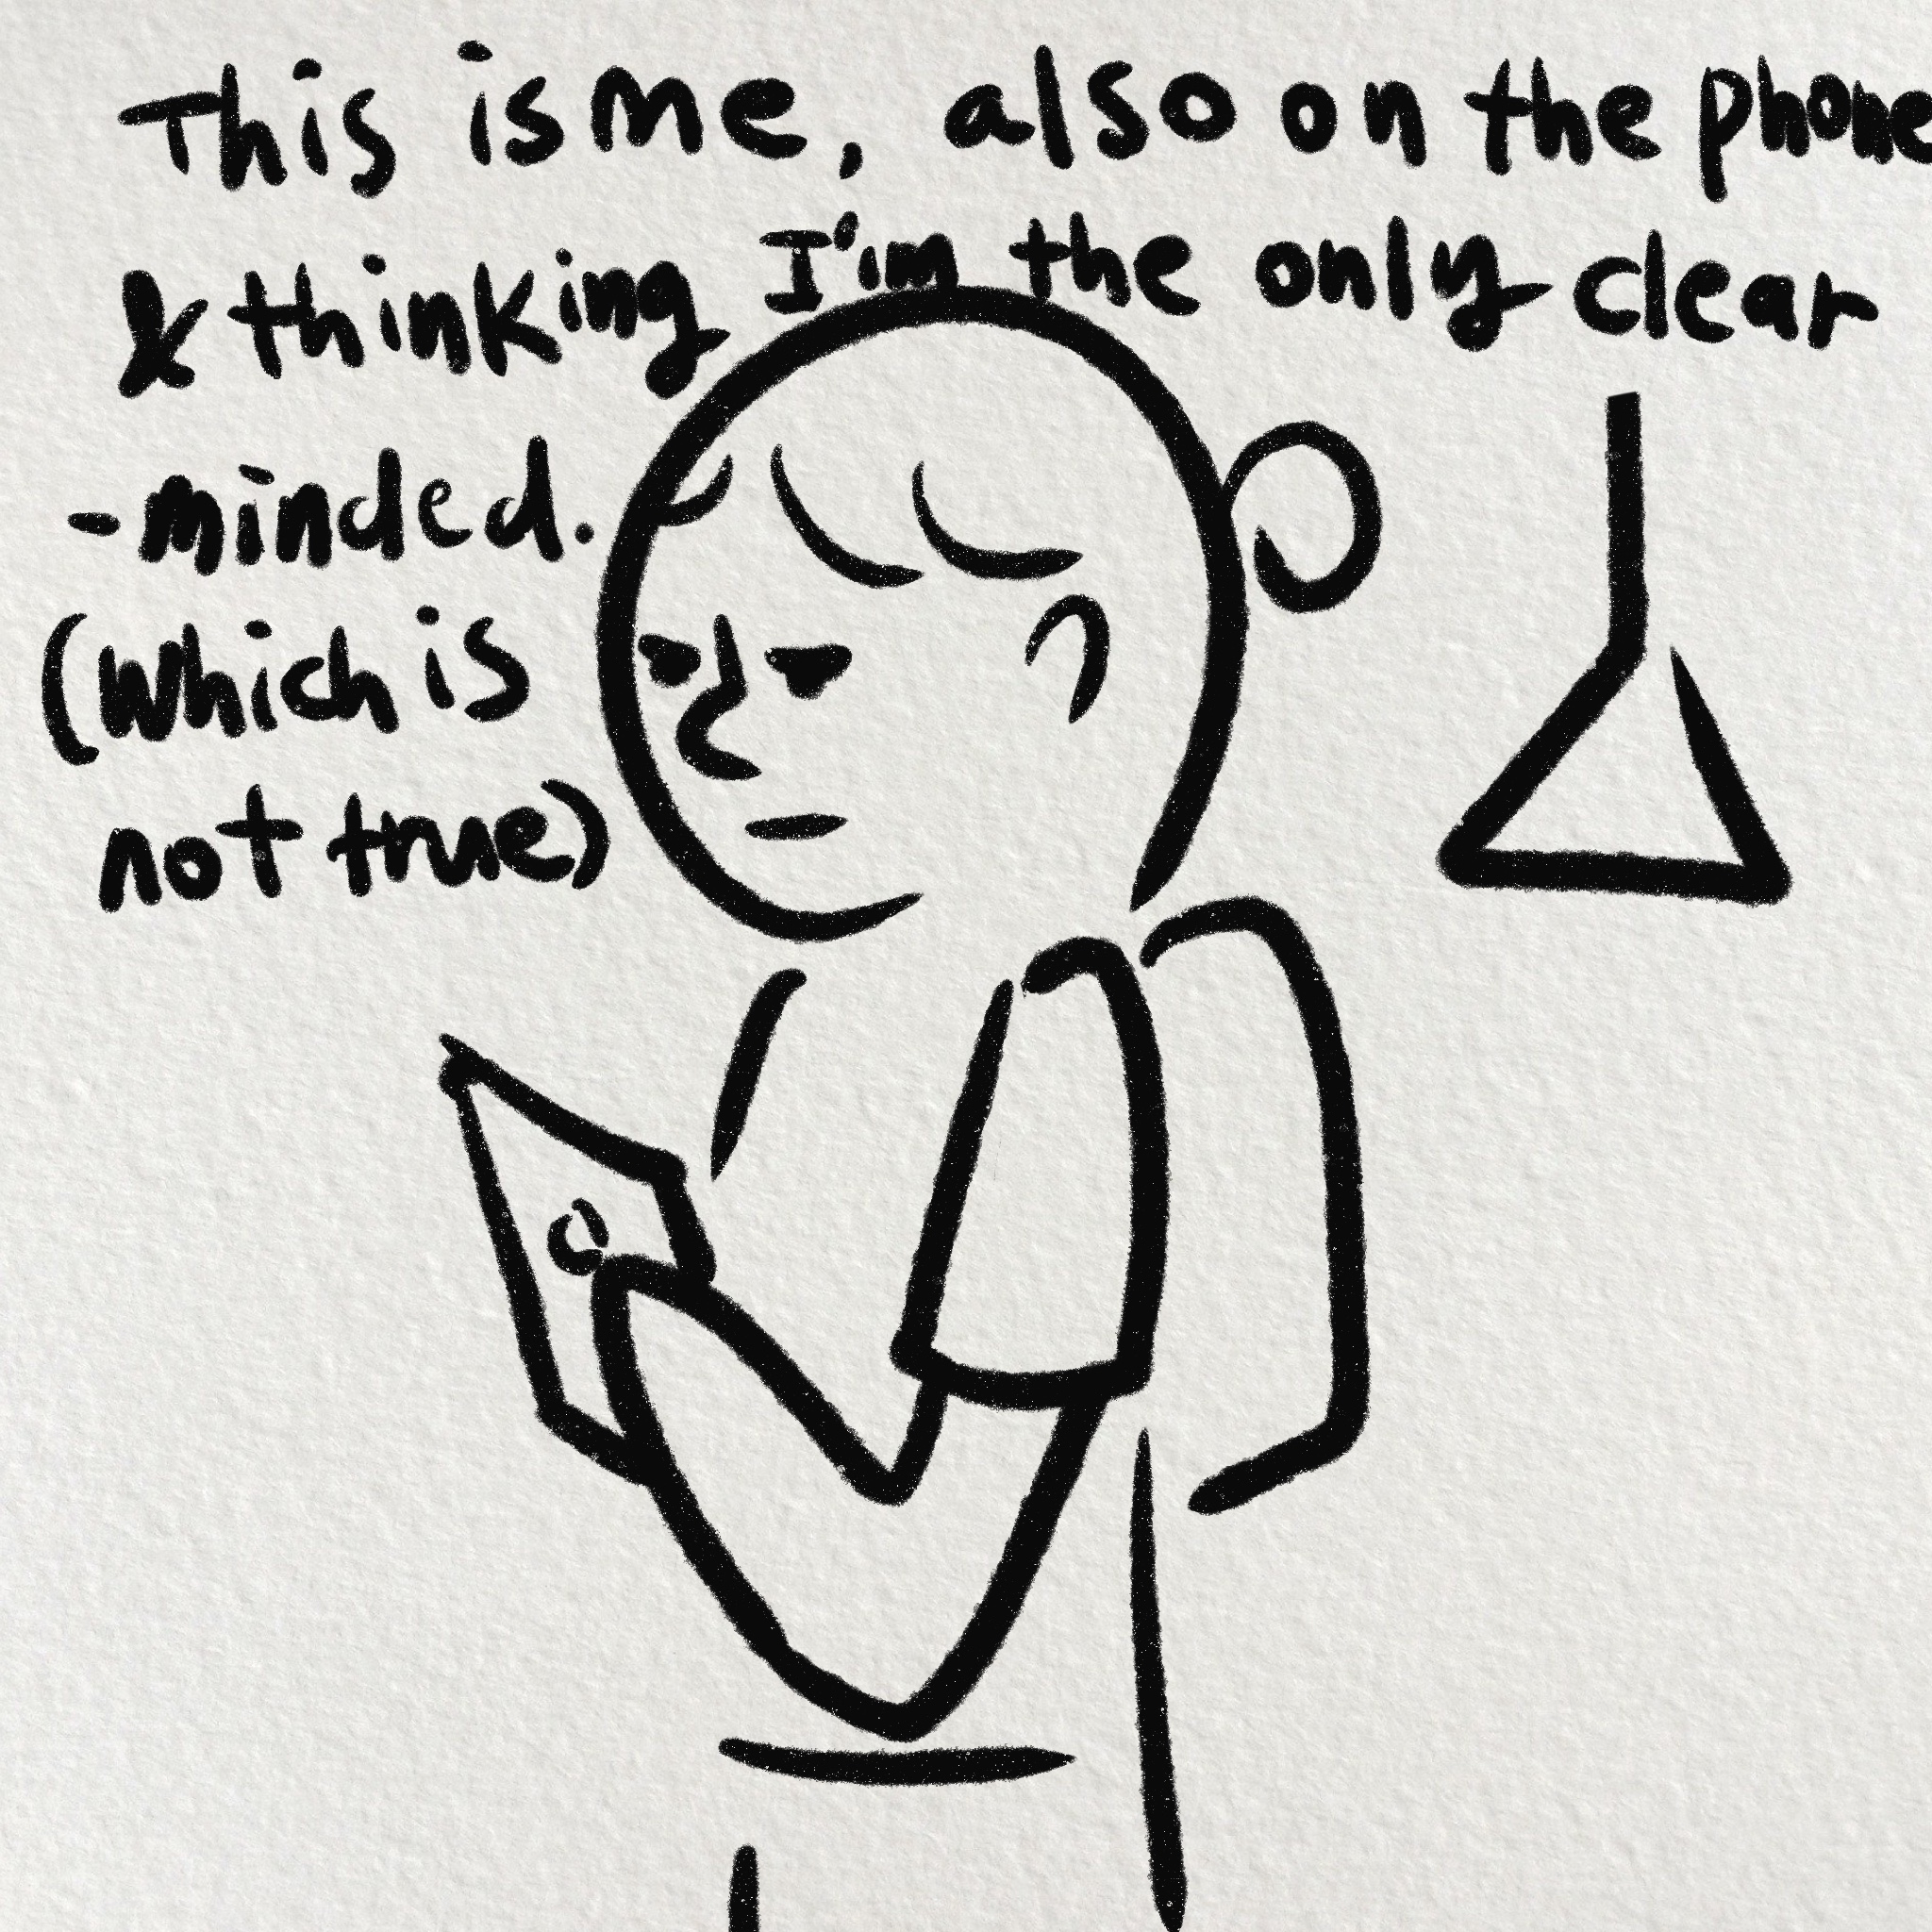 This is me, also on the phone
& thinking I'm the only clear
-minded.
(Which is
not true)